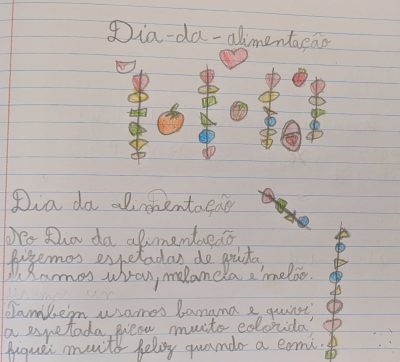 Dia-da-alimentação
Dia da alimentação
No Dia da alimentação
fizemos espetadas de fruta
Usamos uvas, melancia e melão.
Também usamos banana e quivi
a espetada ficou muito colorida,
fiquei muito feliz quando a comi.